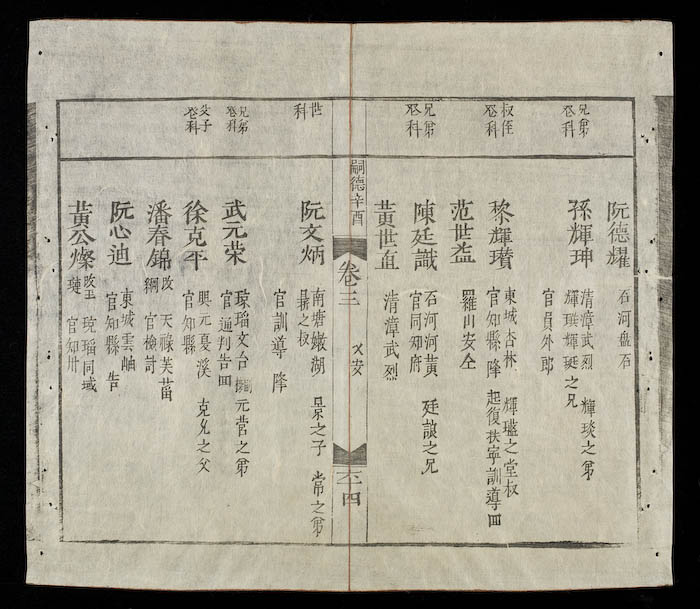 阮德耀
石河盘石
兄弟
登科
孫輝珅
清漳武烈 輝琰之弟
輝㻞輝珽之兄
官員外郎
叔侄
登科
黎輝瓚
東城杏林 輝瑥之堂叔
官知縣降 起復扶寧訓導回
范世益
羅山安全
兄弟
登科
陳廷識
石河河黄 廷諒之兄
官同知府
黄世直
清漳武烈
嗣德辛酉
卷三
乂安
四
世
科
阮文炳
南塘嫩湖 景之子 常之弟
之叔
官訓導 降
兄弟
登科
武元荣
瓊瑠文台 元营之弟
官通判告回
父子
登科
徐克平
興元夏溪 克允之父
官知縣
潘春錦
改 綱
天禄芙蒥
官檢討
阮心迪
東城雲岫
官知縣 告
黄公燦
改玉璉
琼瑠同域
官知州